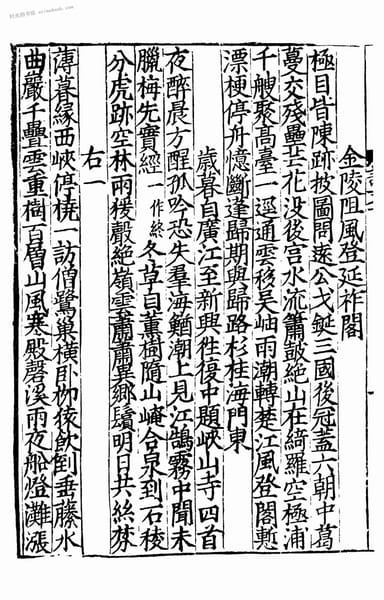 金陵阻風登延祚閣
極目皆陳跡披圖問遠公戈鋋三國後冠蓋六朝中葛
蔓交殘壘芒花没後宮水流簫鼓絶山在綺羅空極浦
千艘聚高臺一逕通雲移吳岫雨潮轉楚江風登閣慙
漂梗停舟憶斷蓬歸期與歸路杉桂海門東
歲暮自廣江至新興徃復中題峽山寺四首
夜醉晨方醒孤吟恐失羣海鰌潮上見江鵠霧中聞未
臘梅先實經一作終冬草自薰樹隨山崦合泉到石稜
分虎跡空林雨猨聲絶嶺雲蕭蕭異郷鬢明日共絲棼
右一
薄暮縁西峽停橈一訪僧鷺巢橫卧栁猿飲倒垂藤水
曲巖千疊雲重樹百層山風寒殿磬溪雨夜船燈灘漲